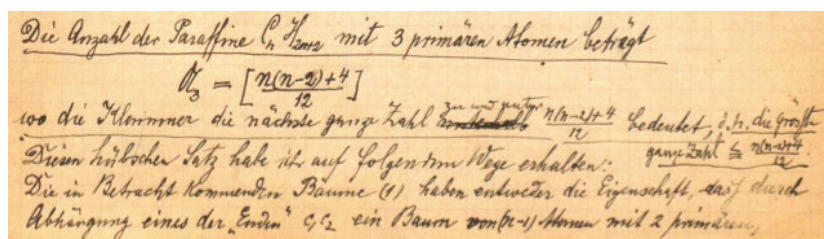 Die Anzahl der Paraffine CₙH₂ₙ₊₂ mit 3 primären Atomen beträgt
α₃ = [n(n-2)+4 / 12]
wo die Klammer die nächste ganze Zahl zu und unter n(n-2)+4 / 12 bedeutet, d.h. die grösste
ganze Zahl ≦ n(n-2)+4 / 12
Diesen hübschen Satz habe ich auf folgendem Wege erhalten:
Die in Betracht kommenden Bäume (1) haben entweder die Eigenschaft, dass durch
Abhängung eines der „Enden" c₁ c₂ ein Baum von (n-1) Atomen mit 2 primären,